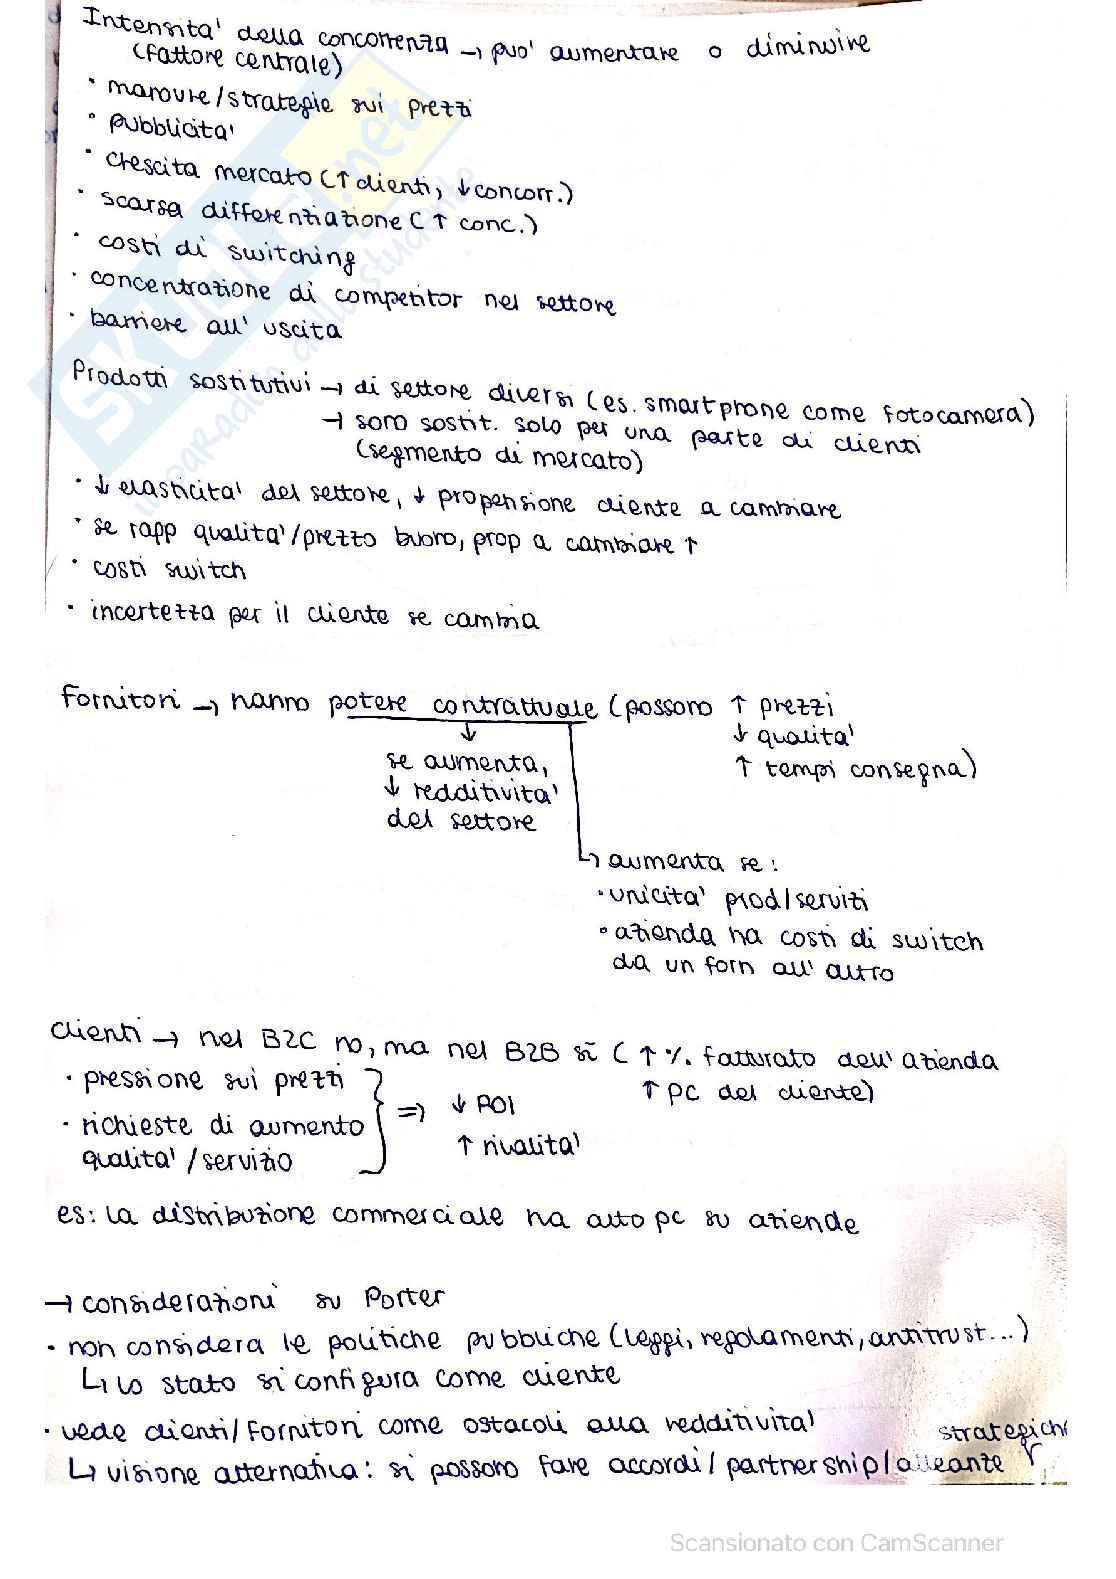 Intensita' della concorrenza → puo' aumentare o diminuire
(fattore centrale)
• manovre/strategie sui prezzi
• pubblicita'
• crescita mercato (↑ clienti, ↓ concorr.)
• scarsa differenziazione (↑ conc.)
• costi di switching
• concentrazione di competitor nel settore
• barriere all' uscita
Prodotti sostitutivi → di settore diversi (es. smartphone come fotocamera)
→ sono sostit. solo per una parte di clienti
(segmento di mercato)
• ↓ elasticita' del settore, ↓ propensione cliente a cambiare
• se rapp qualita'/prezzo buono, prop a cambiare ↑
• costi switch
• incertezza per il cliente se cambia
Fornitori → hanno potere contrattuale (possono ↑ prezzi
↓ qualita'
↑ tempi consegna)
↓
se aumenta,
↓ redditivita'
del settore
↳ aumenta se:
• unicita' prod/servizi
• azienda ha costi di switch
da un forn all' altro
Clienti → nel B2C no, ma nel B2B sì (↑ % fatturato dell' azienda
↑ pc del cliente)
• pressione sui prezzi
• richieste di aumento
qualita' /servizio
} => ↓ ROI
↑ rivalita'
es: la distribuzione commerciale ha alto pc su aziende
→ considerazioni su Porter
• non considera le politiche pubbliche (leggi, regolamenti, antitrust...)
↳ lo stato si configura come cliente
• vede clienti/fornitori come ostacoli alla redditivita'
↳ visione alternativa: si possono fare accordi/partnership/alleanze strategiche
SKUOLA.net
imparadio dallo studente
Scansionato con CamScanner